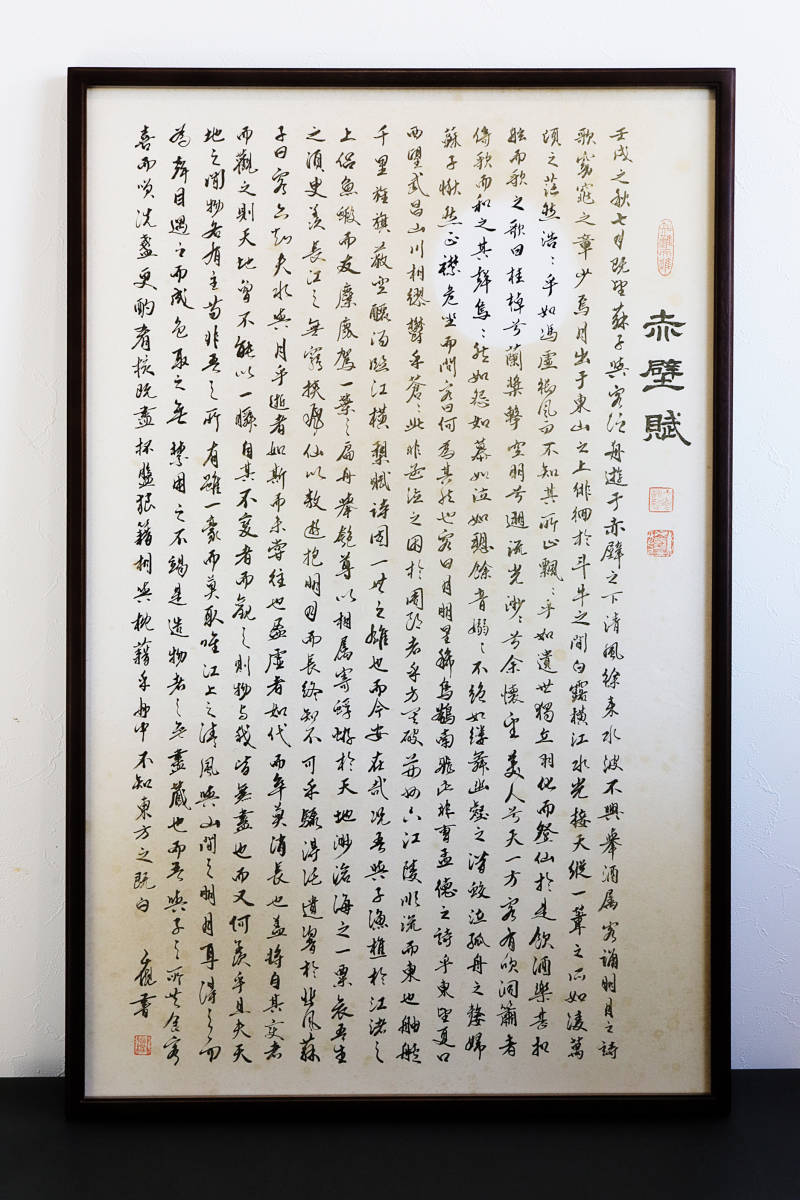 赤壁賦
壬戌之秋七月既望蘇子與客泛舟遊于赤壁之下清風徐來水波不興舉酒属客誦明月之詩
歌窈窕之章少焉月出于東山之上徘徊於斗牛之間白露橫江水光接天縱一葦之所如凌萬
頃之茫然浩〻乎如馮虛御風而不知其所止飄〻乎如遺世獨立羽化而登仙於是飲酒樂甚扣
舷而歌之歌曰桂棹兮蘭槳擊空明兮遡流光渺〻兮余懷望美人兮天一方客有吹洞簫者
倚歌而和之其聲烏〻然如怨如慕如泣如愬餘音嫋〻不絕如縷舞幽壑之潛蛟泣孤舟之嫠婦
蘇子愀然正襟危坐而問客曰何為其然也客曰月明星稀烏鵲南飛此非曹孟德之詩乎東望夏口
西望武昌山川相繆鬱乎蒼〻此非孟德之困於周郎者乎方其破荊州下江陵順流而東也舳艫
千里旌旗蔽空釃酒臨江橫槊賦詩固一世之雄也而今安在哉況吾與子漁樵於江渚之
上侶魚鰕而友麋鹿駕一葉之扁舟舉匏尊以相属寄蜉蝣於天地渺滄海之一粟哀吾生
之須臾羨長江之無窮挾飛仙以敖遊抱明月而長終知不可乎驟得託遺響於悲風蘇
子曰客亦知夫水與月乎逝者如斯而未嘗往也盈虛者如代而卒莫消長也蓋將自其變者
而觀之則天地曾不能以一瞬自其不變者而觀之則物與我皆無盡也而又何羨乎且夫天
地之間物各有主苟非吾之所有雖一毫而莫取唯江上之清風與山間之明月耳得之而
為聲目遇之而成色取之無禁用之不竭是造物者之無盡藏也而吾與子之所共食客
喜而笑洗盞更酌肴核既盡杯盤狼籍相與枕藉乎舟中不知東方之既白